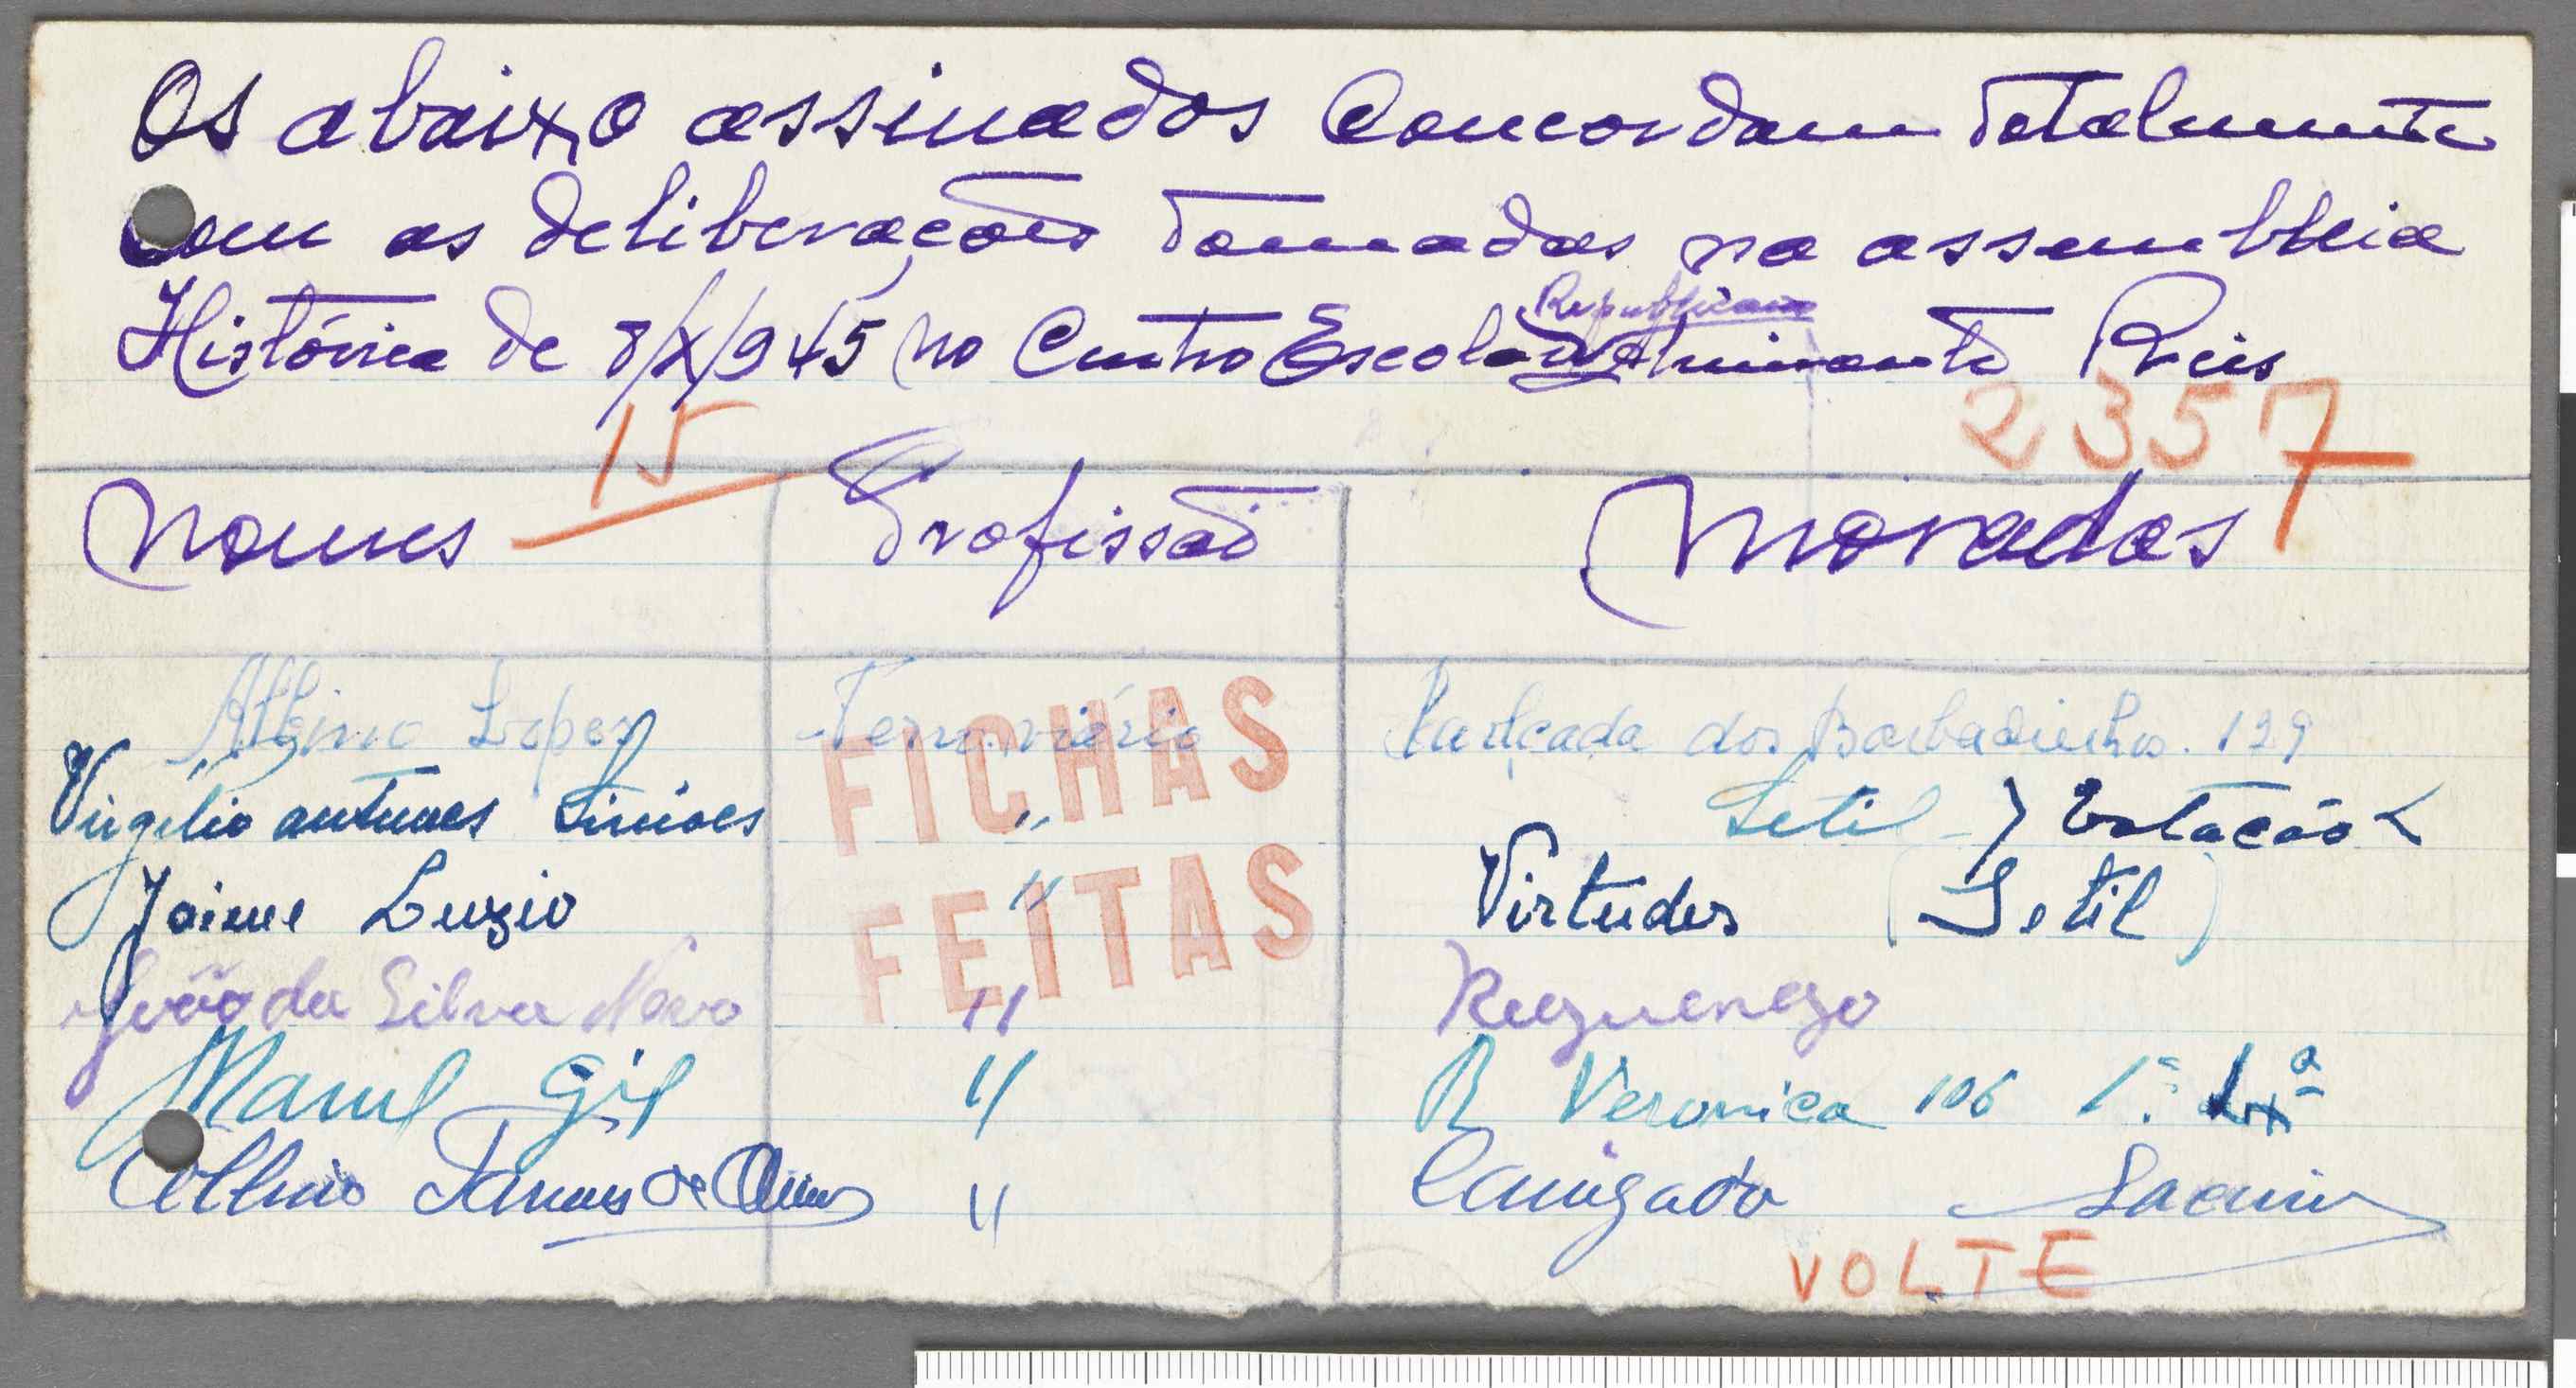 Os abaixo assinados Concordam totalmente
com as deliberações tomadas na assembleia
Histórica de 8/X/945 no Centro Escolar Republicano Almirante Reis
15 2357
Nomes Profissão Moradas
Albino Lopes Ferroviário Calçada dos Barbadinhos. 129
Virgilio antunes Simões " Setil - Estação
Jaime Luzio " Virtudes (Setil)
João da Silva Novo " Reguengo
Manuel Gil " R Veronica 106 1º Lxª
Albino " Caniçado
FICHAS
FEITAS
VOLTE